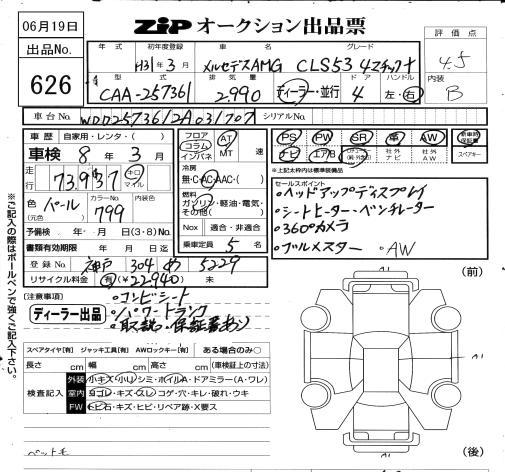 06月19日
ZIP オークション出品票
評価点
4.5
内装
B
出品No.
626
年式 初年度登録 車名 グレード
H31年3月 メルセデスAMG CLS53 4マチック+
型式 排気量 ドア ハンドル
CAA-257361 2,990 ディーラー・並行 4 左・右
車台No. WDD2573612A031707 シリアルNo.
車歴 自家用・レンタ・( )
車検 8年3月
走行 73,937 キロ マイル
色 (元色) パール カラーNo. 799 内装色
予備検 年・月・日(3・8)No.
書類有効期限 年 月 日迄
登録No. 神戸 304 め 5229
リサイクル料金 有(¥22,940) 未
フロア コラム インパネ AT MT 速
冷房 無・C・AC・AAC・( )
燃料 ガソリン・軽油・電気・その他( )
Nox 適合・非適合
乗車定員 5名
PS PW SR 革 AW 新車時保証書
ナビ エアB 社外ナビ 社外AW スペアキー
※上記太枠内は標準装備
セールスポイント
・ヘッドアップディスプレイ
・シートヒーター・ベンチレーター
・360°カメラ
・ブルメスター ・AW
(注意事項)
ディーラー出品
・コンビシート
・パワートランク
・取説・保証書あり
※ご記入の際はボールペンで強くご記入下さい。
スペアタイヤ[有] ジャッキ工具[有] AWロックキー[有] ある場合のみ○
長さ cm 幅 cm 高さ cm (車検証上の寸法)
検査記入
外装 小キズ・小リシミ・ホイルA・ドアミラー(A・ワレ)
室内 ヨゴレ・キズ・スレ・コゲ・穴・キレ・破れ・ウキ
FW トビ石・キズ・ヒビ・リペア跡・X要ス
ペット毛
(前)
A1
A1
(後)